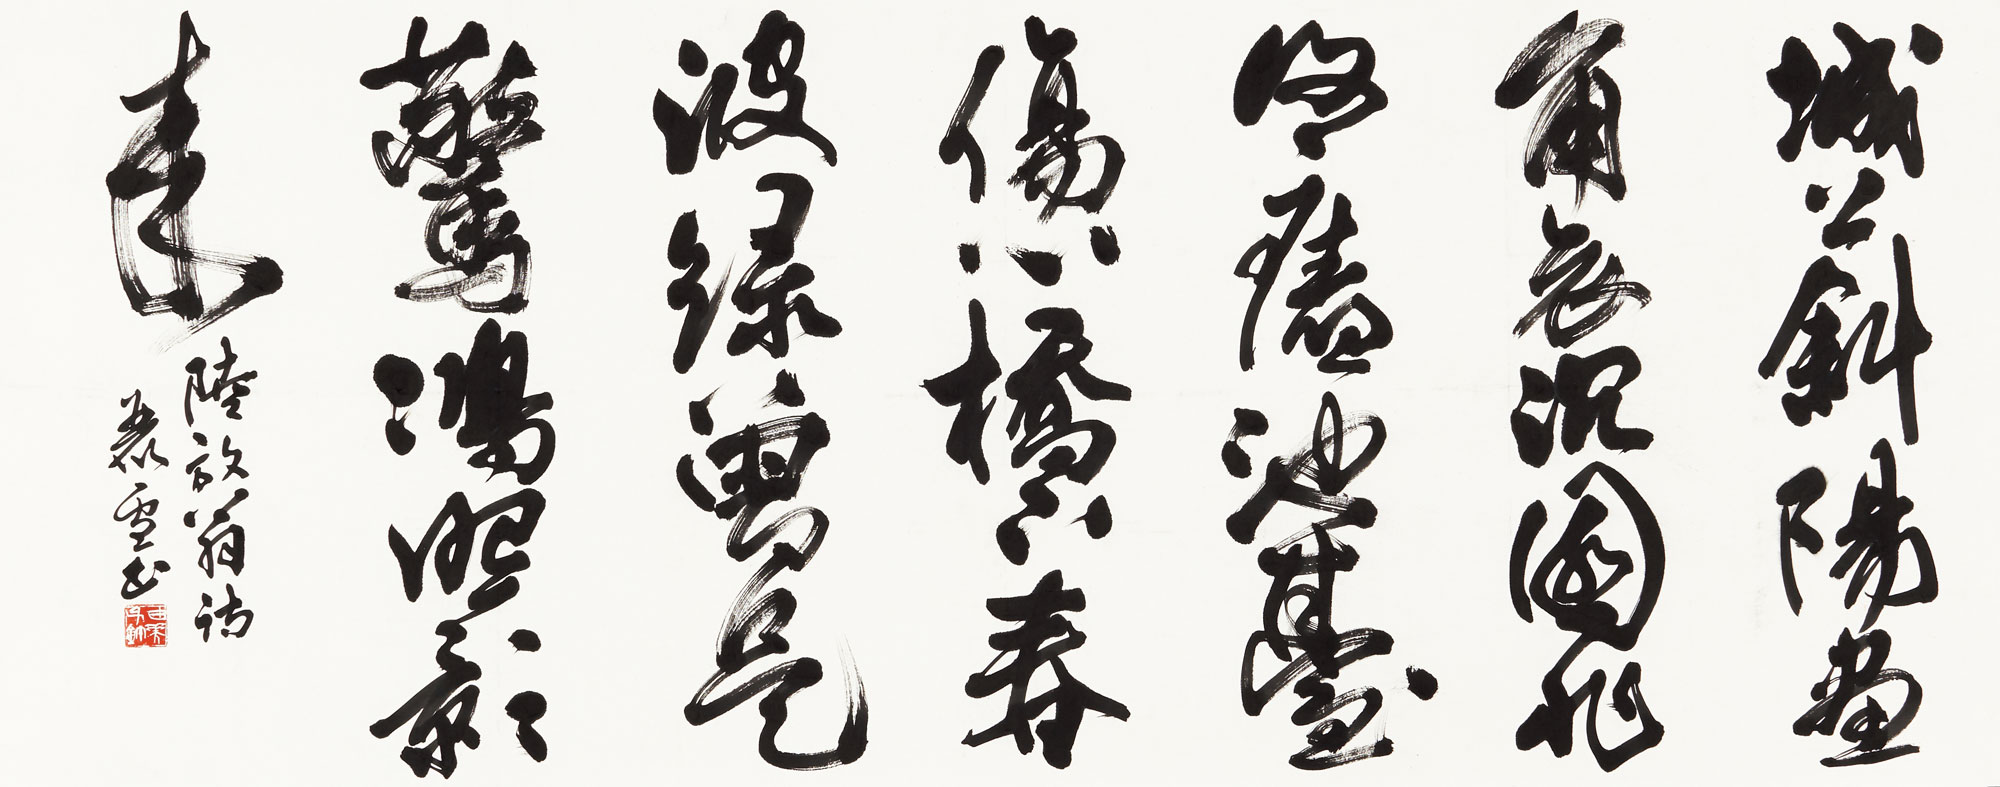 城上斜陽畫
角哀沉園非
復舊池臺
傷心橋下春
波綠曾是
驚鴻照影
來
陸放翁詩